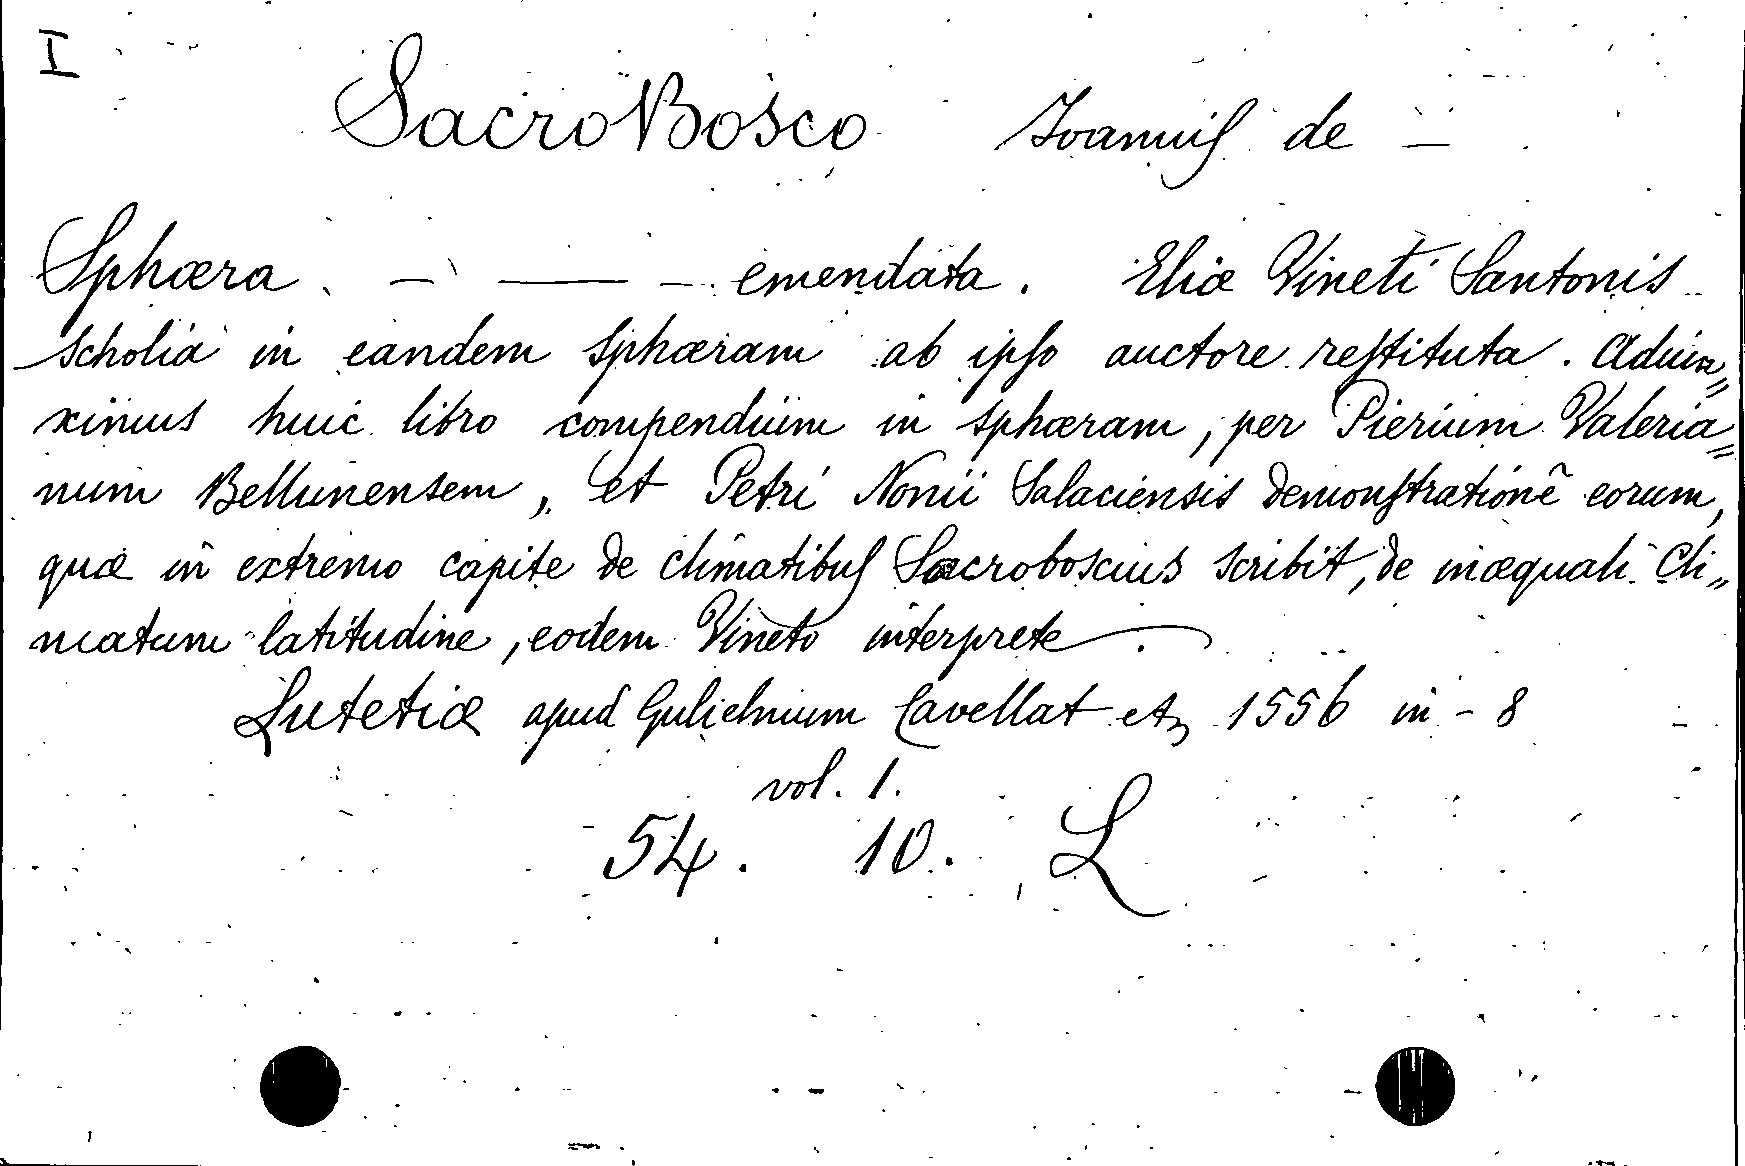 I
SacroBosco Ioannis de —
Sphæra. — —— — emendata. Eliæ Vineti Santonis
scholia in eandem sphæram ab ipso auctore restituta. Adiun„
ximus huic libro compendium in sphæram, per Pierium Valeria„
num Bellunensem, et Petri Nonii Salaciensis demonstrationẽ eorum,
quæ in extremo capite de climatibus Sacroboscius scribit, de inæquali Cli„
matum latitudine, eodem Vineto interprete.
Lutetiæ apud Gulielmum Cavellat etz 1556 in-8
vol. 1.
54. 10. L